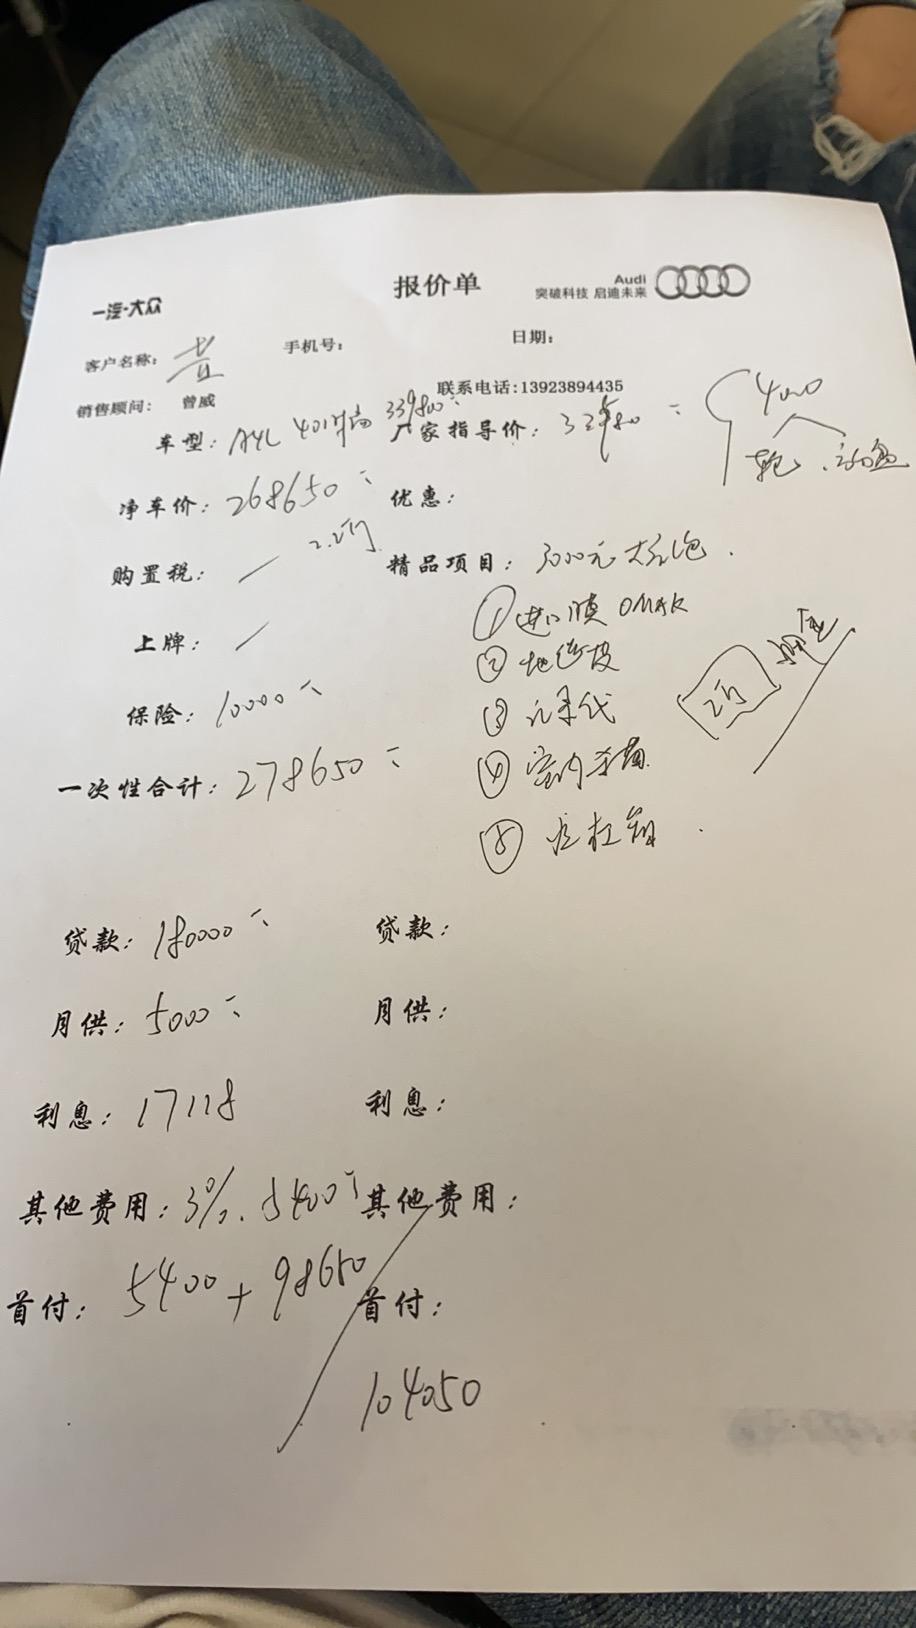 一汽·大众
报价单
Audi
突破科技 启迪未来
客户名称: 黄
手机号:
日期:
销售顾问: 曾威
联系电话:13923894435
车型: A4L 40时尚 339800
厂家指导价:
净车价: 268650
优惠:
购置税: 2.2万
精品项目: 3000元大礼包.
上牌:
① 进口膜
② 地毯
保险: 10000
③ 记录仪
2万
一次性合计: 278650
④ 室内
⑤
贷款: 180000
贷款:
月供: 5000
月供:
利息: 17118
利息:
其他费用: 3%. 5400
其他费用:
首付: 5400 + 98650
首付:
104050